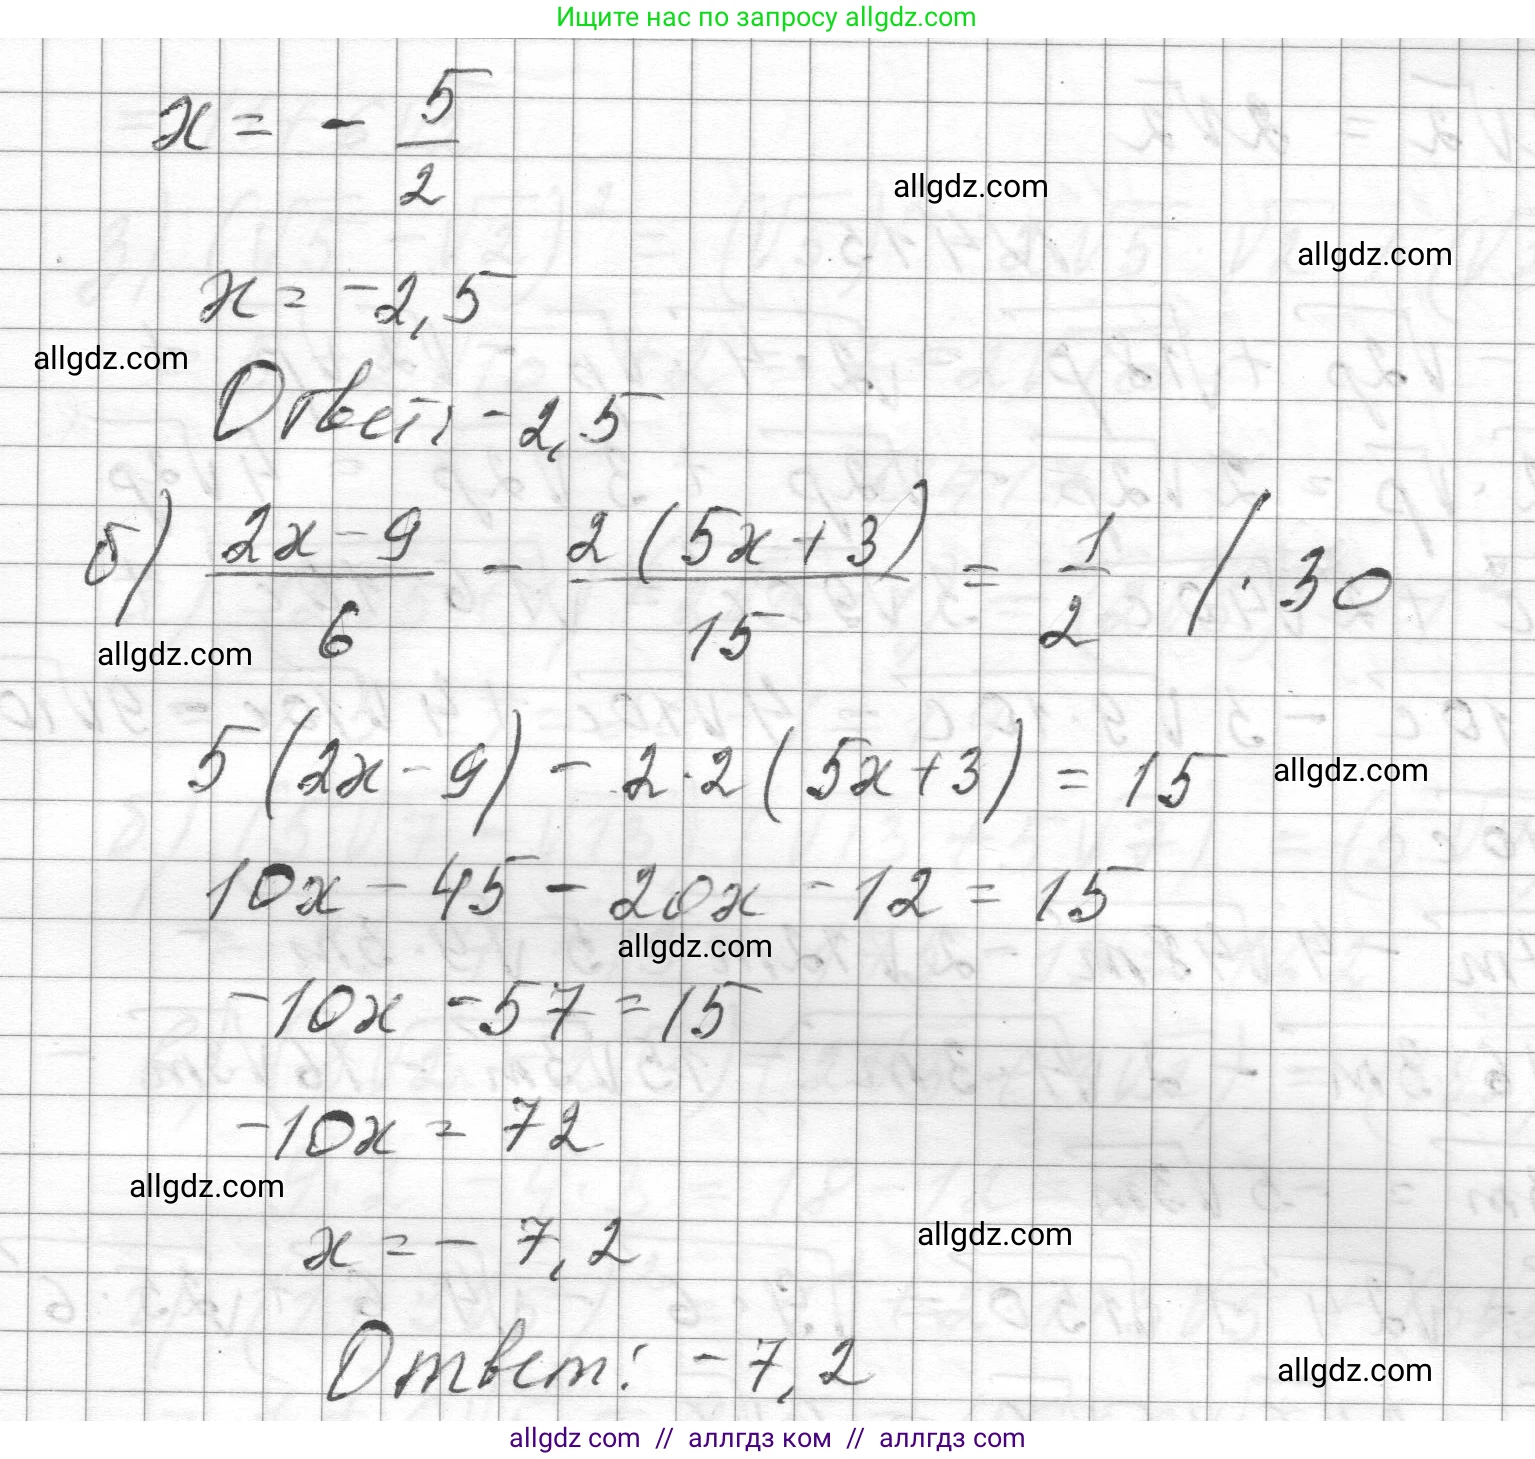 Ищите нас по запросу allgdz.com
x = - 5/2
allgdz.com
allgdz.com
x = -2,5
allgdz.com
Ответ: -2,5
б) (2x - 9)/6 - 2(5x + 3)/15 = 1/2 /· 30
allgdz.com
5(2x - 9) - 2·2(5x + 3) = 15
allgdz.com
10x - 45 - 20x - 12 = 15
allgdz.com
-10x - 57 = 15
-10x = 72
allgdz.com
x = - 7,2
allgdz.com
Ответ: -7,2
allgdz.com
allgdz com // аллгдз ком // аллгдз com